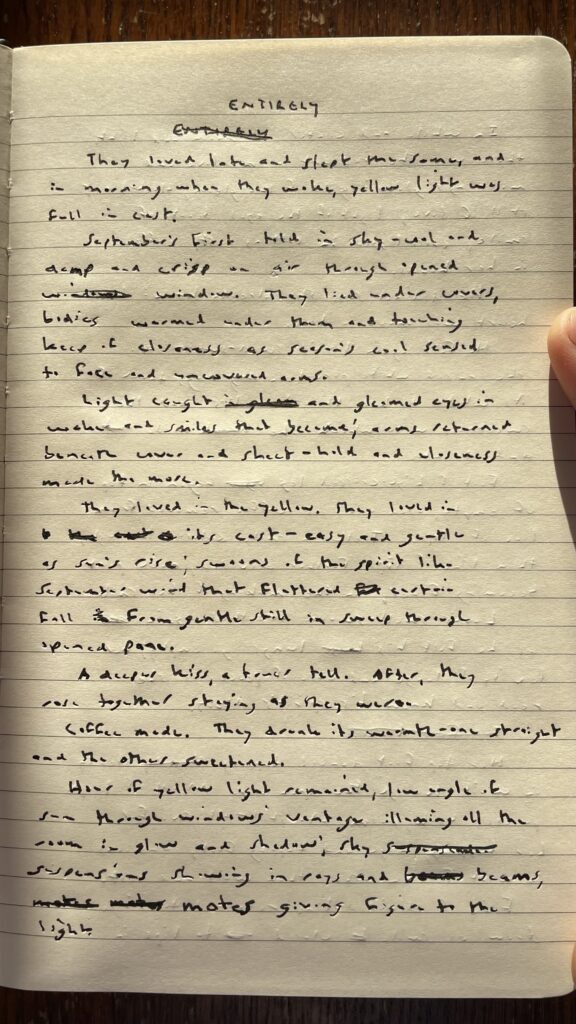 ENTIRELY
ENTIRELY
They loved late and slept the same, and
in morning when they woke, yellow light was
full in cast.
September's first told in sky-cool and
damp and crisp on air through opened
windows window. They lied under covers,
bodies warmed under them and touching
keep of closeness as season's cool sensed
to face and uncovered arms.
Light caught in gleam and gleamed eyes in
wake and smiles that became; arms returned
beneath cover and sheet-hold and closeness
made the more.
They loved in the yellow. They loved in
its cast-easy and gentle
as sun's rise; swoons of the spirit like
September wind that flattered curtain
fall from gentle still in sweep through
opened pane.
A deeper kiss, a truer tell. After, they
rose together staying as they were.
Coffee made. They drank its warmth-one straight
and the other sweetened.
Hour of yellow light remained, low angle of
sun through windows' vantage illuming all the
room in glow and shadow; sky suspended
suspensions showing in rays and beams beams,
motes motes motes giving figure to the
light.